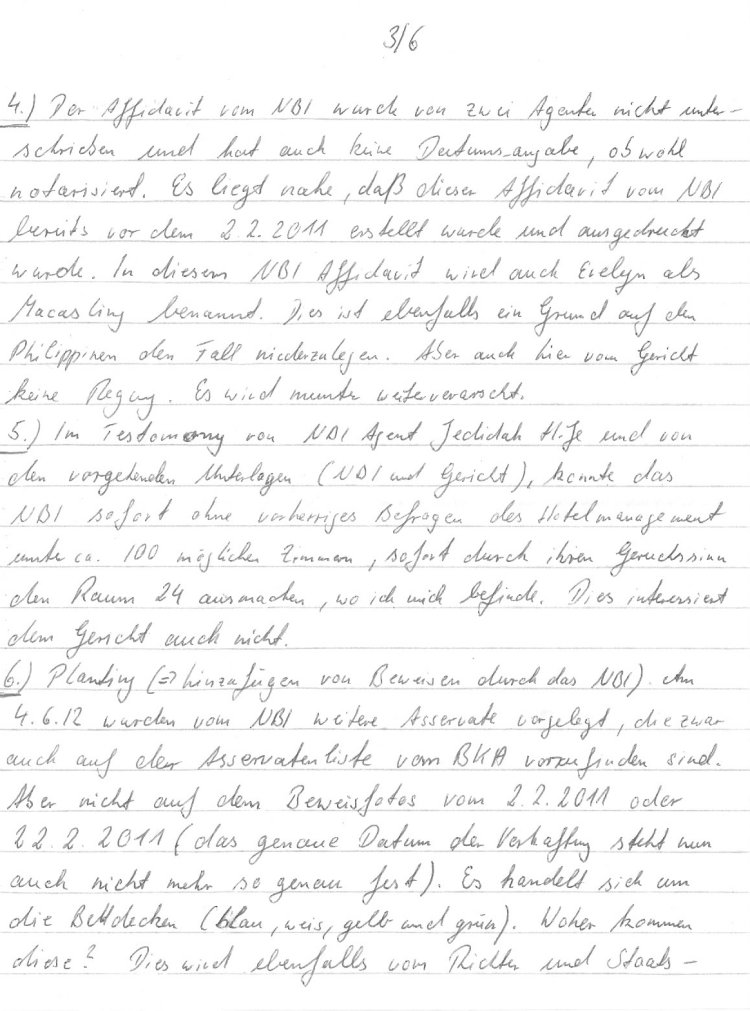 3/6
4.) Der Affidavit vom NBI wurde von zwei Agenten nicht unter-
schrieben und hat auch keine Datumsangabe, obwohl
notarisiert. Es liegt nahe, daß dieser Affidavit vom NBI
bereits vor dem 2.2.2011 erstellt wurde und ausgedruckt
wurde. In diesem NBI Affidavit wird auch Evelyn als
Macasling benannt. Dies ist ebenfalls ein Grund auf den
Philippinen den Fall niederzulegen. Aber auch hier vom Gericht
keine Regung. Es wird munter weiterverarscht.
5.) Im Testomony von NBI Agent Jedidah H. Je und von
den vorgehenden Unterlagen (NBI und Gericht), konnte das
NBI sofort ohne vorherriges Befragen des Hotelmanagement
unter ca. 100 möglichen Zimmern, sofort durch ihren Geruchssinn
den Raum 24 ausmachen, wo ich mich befinde. Dies interessiert
dem Gericht auch nicht.
6.) Planting (=> hinzufügen von Beweisen durch das NBI). Am
4.6.12 wurden vom NBI weitere Asservate vorgelegt, die zwar
auch auf der Asservatenliste vom BKA vorzufinden sind.
Aber nicht auf dem Beweisfotos vom 2.2.2011 oder
22.2.2011 (das genaue Datum der Verhaftung steht nun
auch nicht mehr so genau fest). Es handelt sich um
die Bettdecken (blau, weis, gelb und grün). Woher kommen
diese? Dies wird ebenfalls vom Richter und Staats-